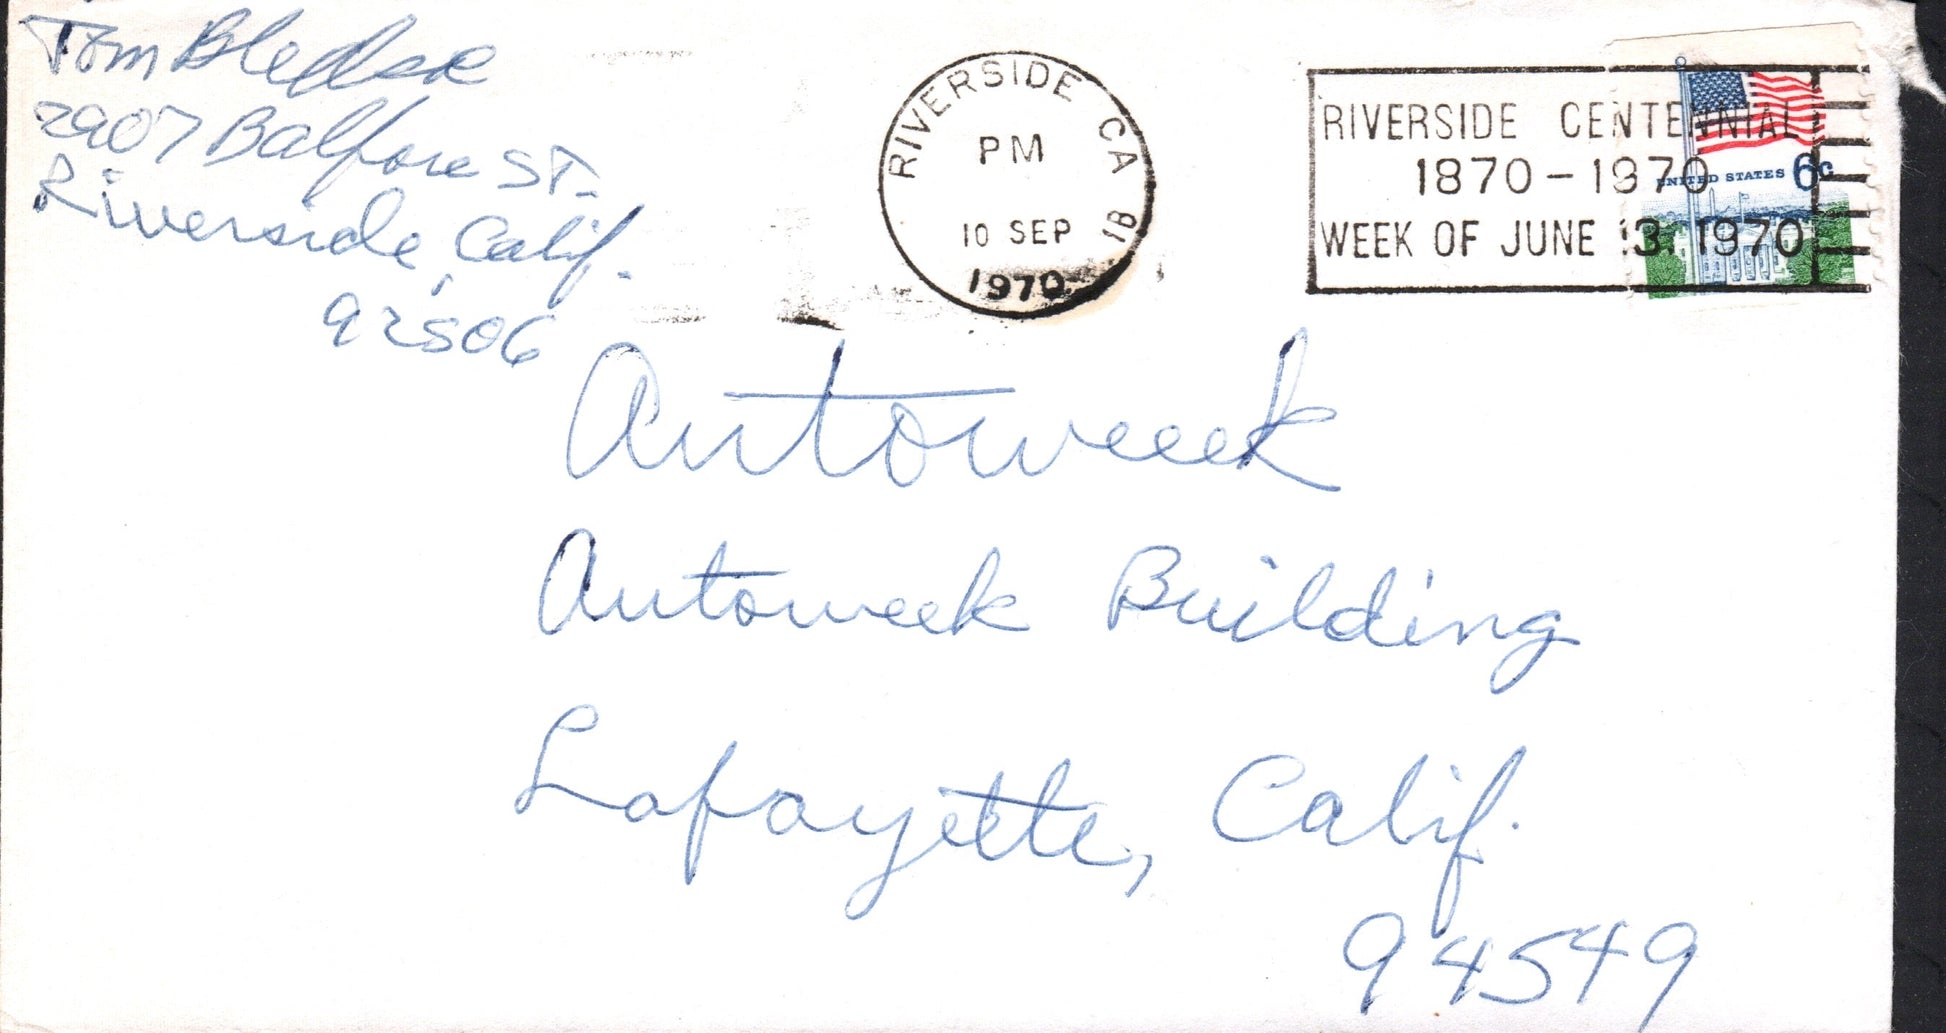 Tom Bledsoe
2907 Balfore ST.
Riverside, Calif.
92506
RIVERSIDE CA 81
PM
10 SEP
1970
RIVERSIDE CENTENNIAL
1870-1970
WEEK OF JUNE 13, 1970
UNITED STATES 6c
Autoweeek
Autoweek Building
Lafayette, Calif.
94549